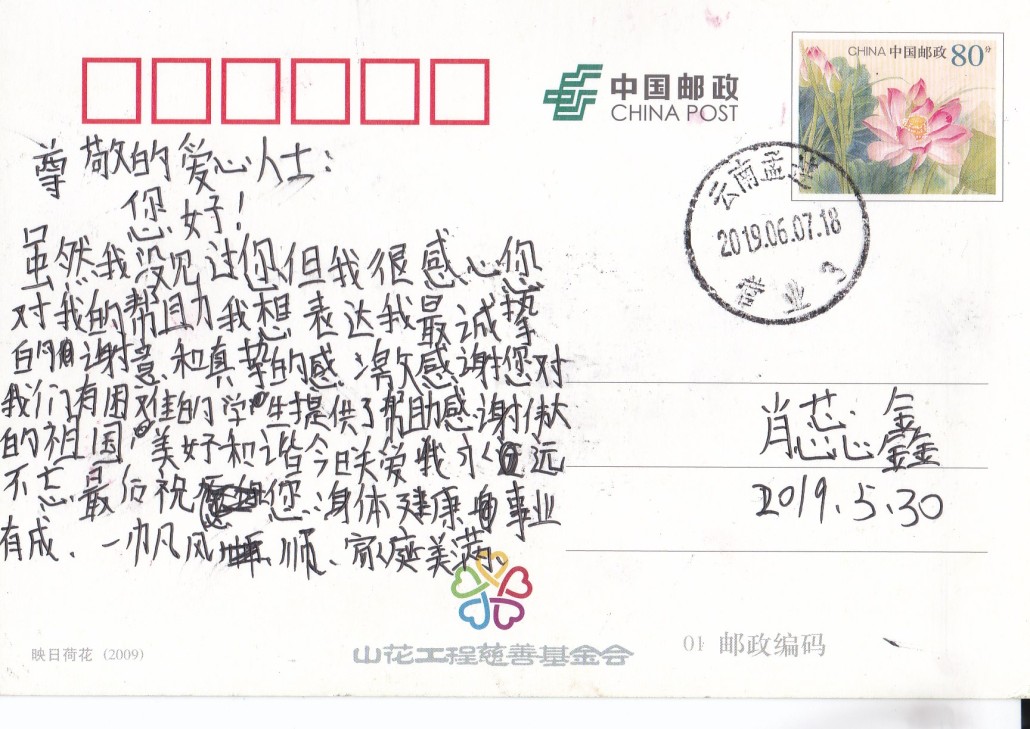 CHINA 中国邮政 80分
中国邮政
CHINA POST
云南孟连
2019.06.07.18
营业 3
尊敬的爱心人士:
您好!
虽然我没见过您但我很感心您
对我的帮助我想表达我最诚挚
的谢意和真挚的感激感谢您对
我们有困难的学生提供了帮助感谢伟大
的祖国美好和谐今日关爱我永远
不忘最后祝您身体健康事业
有成、一帆风顺、家庭美满、
肖蕊鑫
2019.5.30
映日荷花 (2009)
山花工程慈善基金会
邮政编码